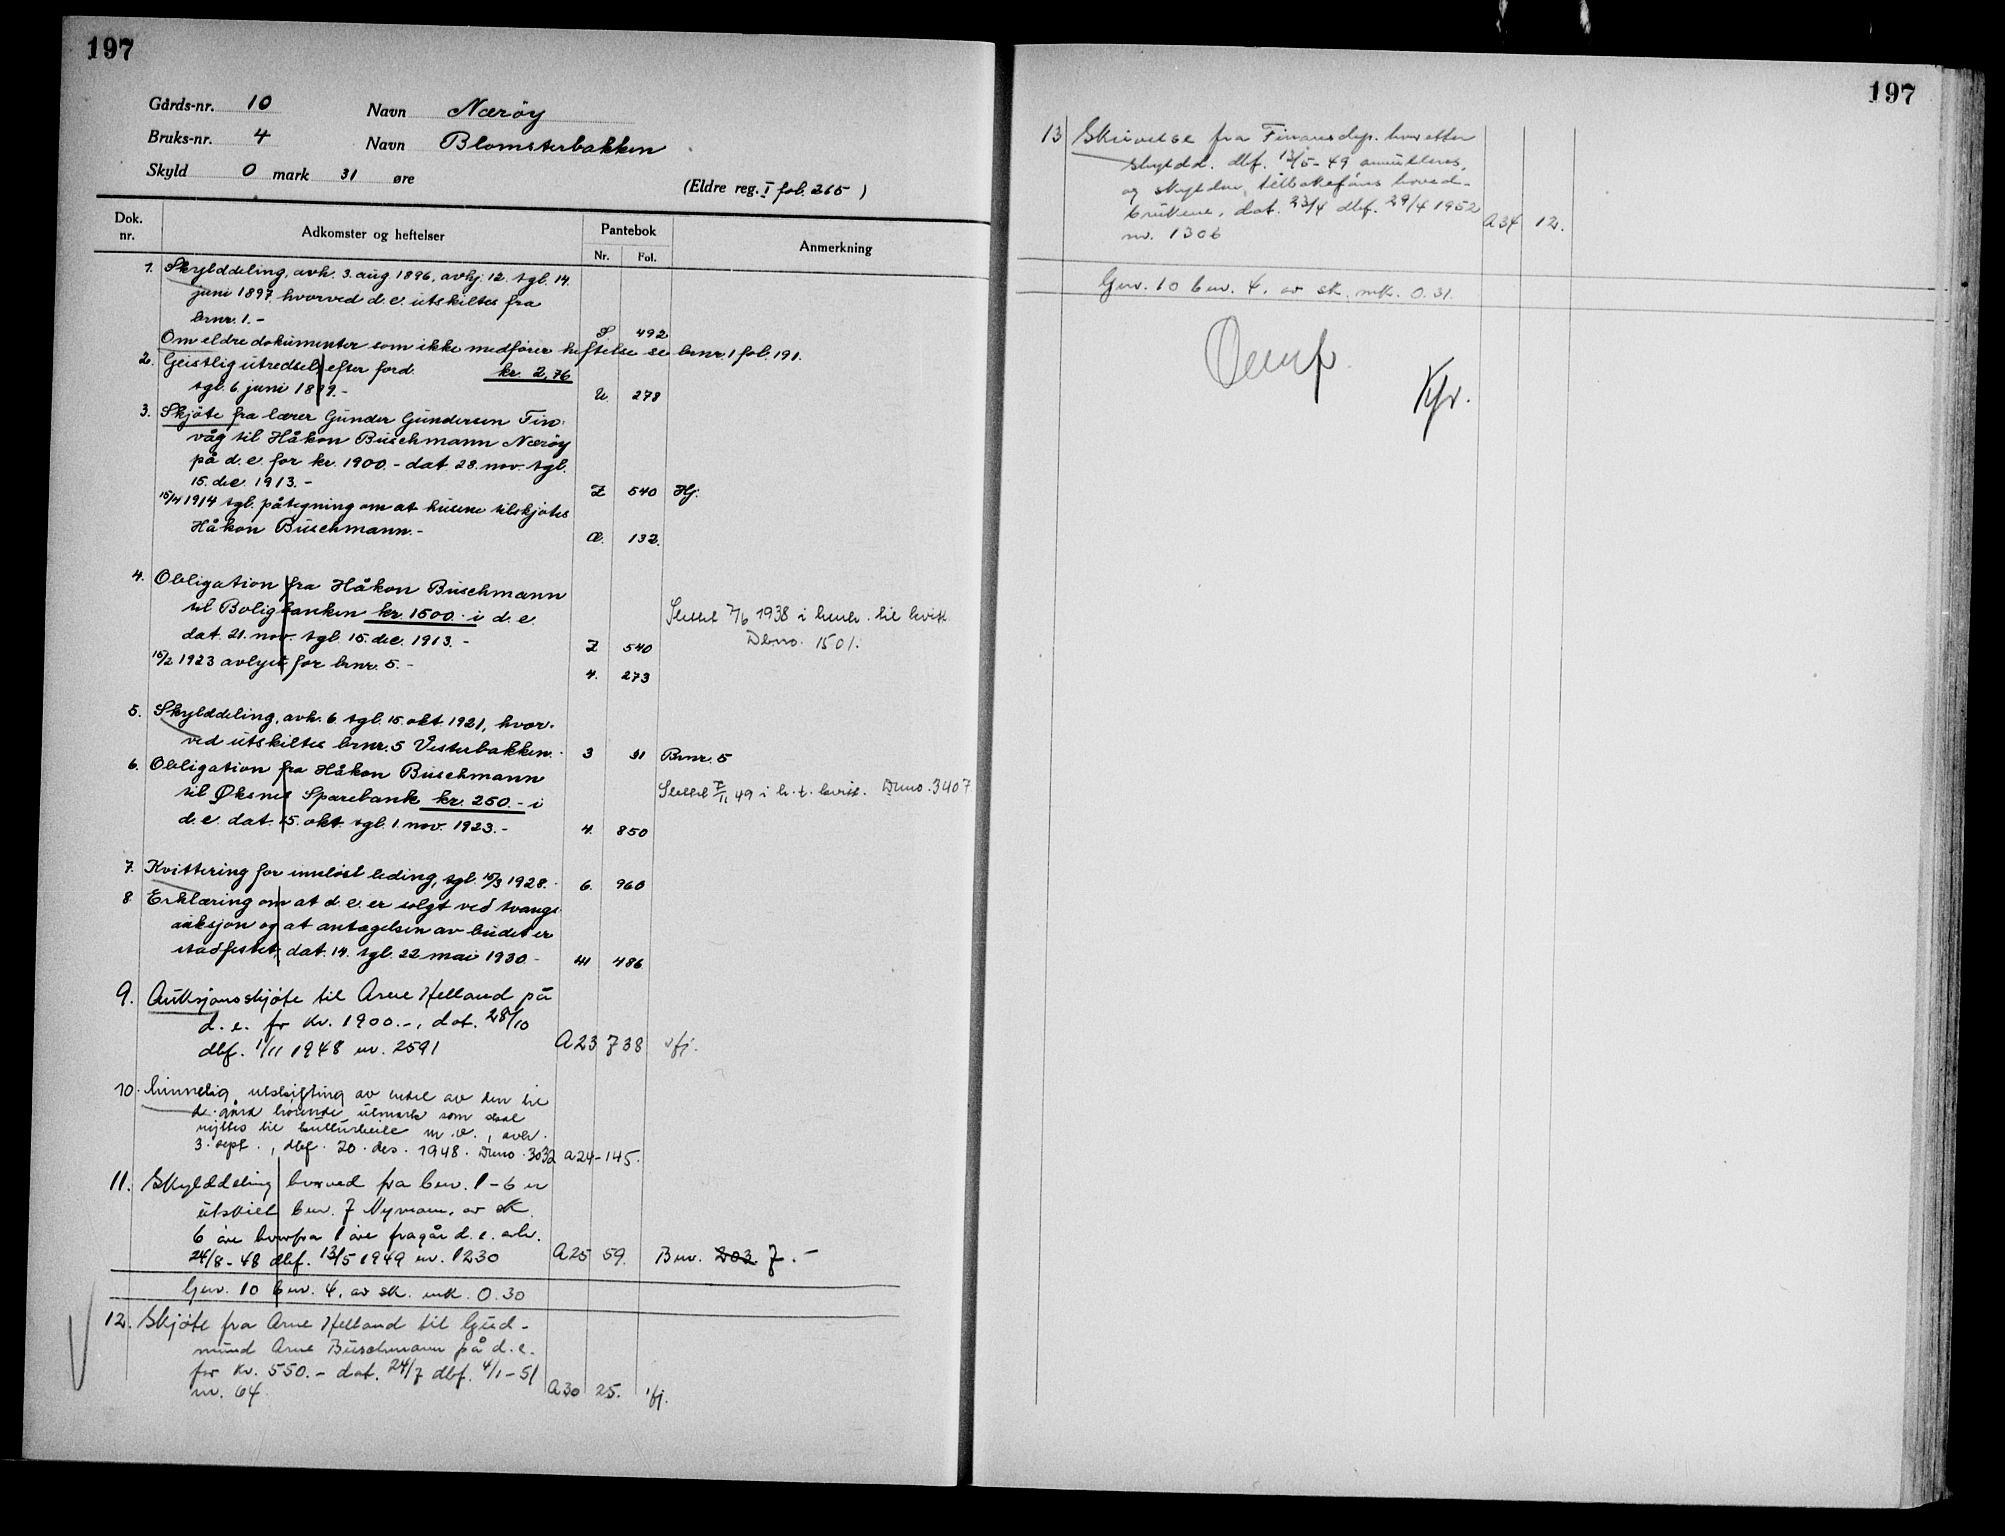 197
Gårds-nr. 10 Navn Nærøy
Bruks-nr. 4 Navn Blomsterbakken
Skyld 0 mark 31 øre
(Eldre reg. I fol. 265)
Dok. nr. Adkomster og heftelser Pantebok Nr. Fol. Anmerkning
1. Skylddeling, avh. 3. aug 1896, avhj. 12. tgl. 14.
juni 1897 hvorved d.e. utskiltes fra
brnr. 1.- S 492
Om eldre dokumenter som ikke medfører heftelse se brnr. 1 fol. 191.
2. Geistlig utredsel efter ford. kr. 2,76
tgl. 6 juni 1899.- U. 278
3. Skjøte fra lærer Gunder Gundersen Tin-
våg til Håkon Buschmann Nærøy
på d.e. for kr. 1900.- dat. 28. nov. tgl.
15. dec. 1913.- Z 540 Hj.
15/4 1914 tgl. påtegning om at husene tilskjøtes
Håkon Buschmann.- Æ. 132.
4. Obligation fra Håkon Buschmann
til Boligbanken kr. 1500.- i d.e.
dat. 21. nov. tgl. 15. dec. 1913.- Z 540
Slettet 7/6 1938 i henh. til kvitt.
Dbno. 1501.
15/2 1923 avlyst for brnr. 5.- 4. 273
5. Skylddeling, avh. 6 tgl. 15. okt. 1921, hvor-
ved utskiltes brnr. 5 Vesterbakken. 3 31 Brnr. 5
6. Obligation fra Håkon Buschmann
til Øksnes Sparebank kr. 250.- i
d.e. dat. 15. okt. tgl. 1. nov. 1923.- 4. 850
Slettet 49 i h. t. kvitt. Dnno. 3407
7. Kvittering for innløst leding, tgl. 15/3 1928. 6. 960
8 Erklæring om at d.e. er solgt ved tvangs
auksjon og at antagelsen av budet er
stadfestet, dat. 14. tgl. 22 mai 1930.- 486
9. Auksjonsskjøte til Arne Helland på
d.e. for kr. 1900.-, dat. 28/10
dbf. 1/11 1948 nr. 2591 A23 738
10. Minnelig utskifting av endel av den til
d. gård hørende utmark som skal
nyttes til kulturbeite m.v., avh.
3. sept., dbf. 20. des. 1948. Dnno. 3032 A24-145.
11. Skylddeling hvorved fra bnr. 1-6 er
utskilt bnr. 7 Nymoen, av sk.
6 øre hvorfra 1 øre fragår d.e. avh.
24/8-48 dbf. 13/5 1949 nr. 1230 A25 59. Bnr. 203 7.-
Gnr. 10 bnr. 4, av sk. mk. 0.30
12. Skjøte fra Arne Helland til Gud-
mund Arne Buschmann på d.e.
for kr. 550.- dat. 24/7 dbf. 4/1-51
nr. 64 A30 25.
197
13 Skrivelse fra Finansdep. hvoretter
skyldd. dbf. 13/5-49 annulleres,
og skylden tilbakeføres hoved-
brukene, dat. 23/4 dbf. 29/4 1952
nr. 1306 A34 12.
Gnr. 10 bnr. 4. av sk. mk. 0.31.